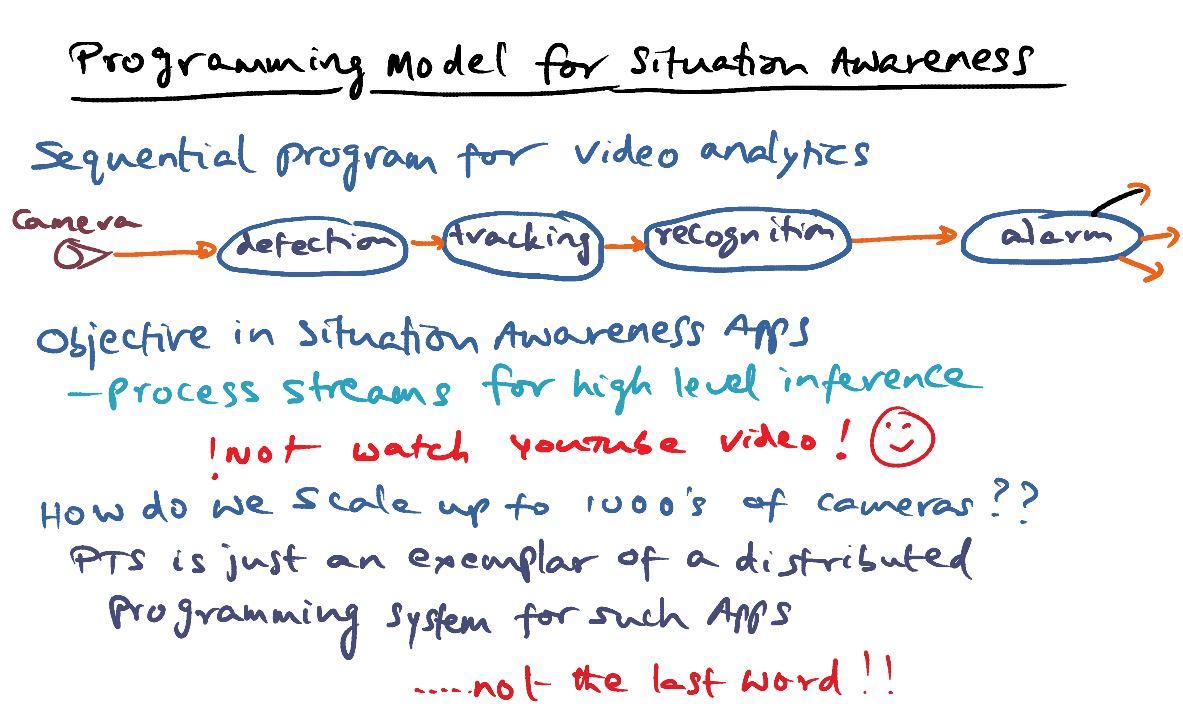 Programming Model for Situation Awareness
Sequential program for video analytics
Camera
detection tracking recognition alarm
Objective in Situation Awareness Apps
- Process streams for high level inference
! not watch YouTube video!
How do we scale up to 1000's of cameras??
PTS is just an exemplar of a distributed
Programming System for such Apps
.....not the last word!!